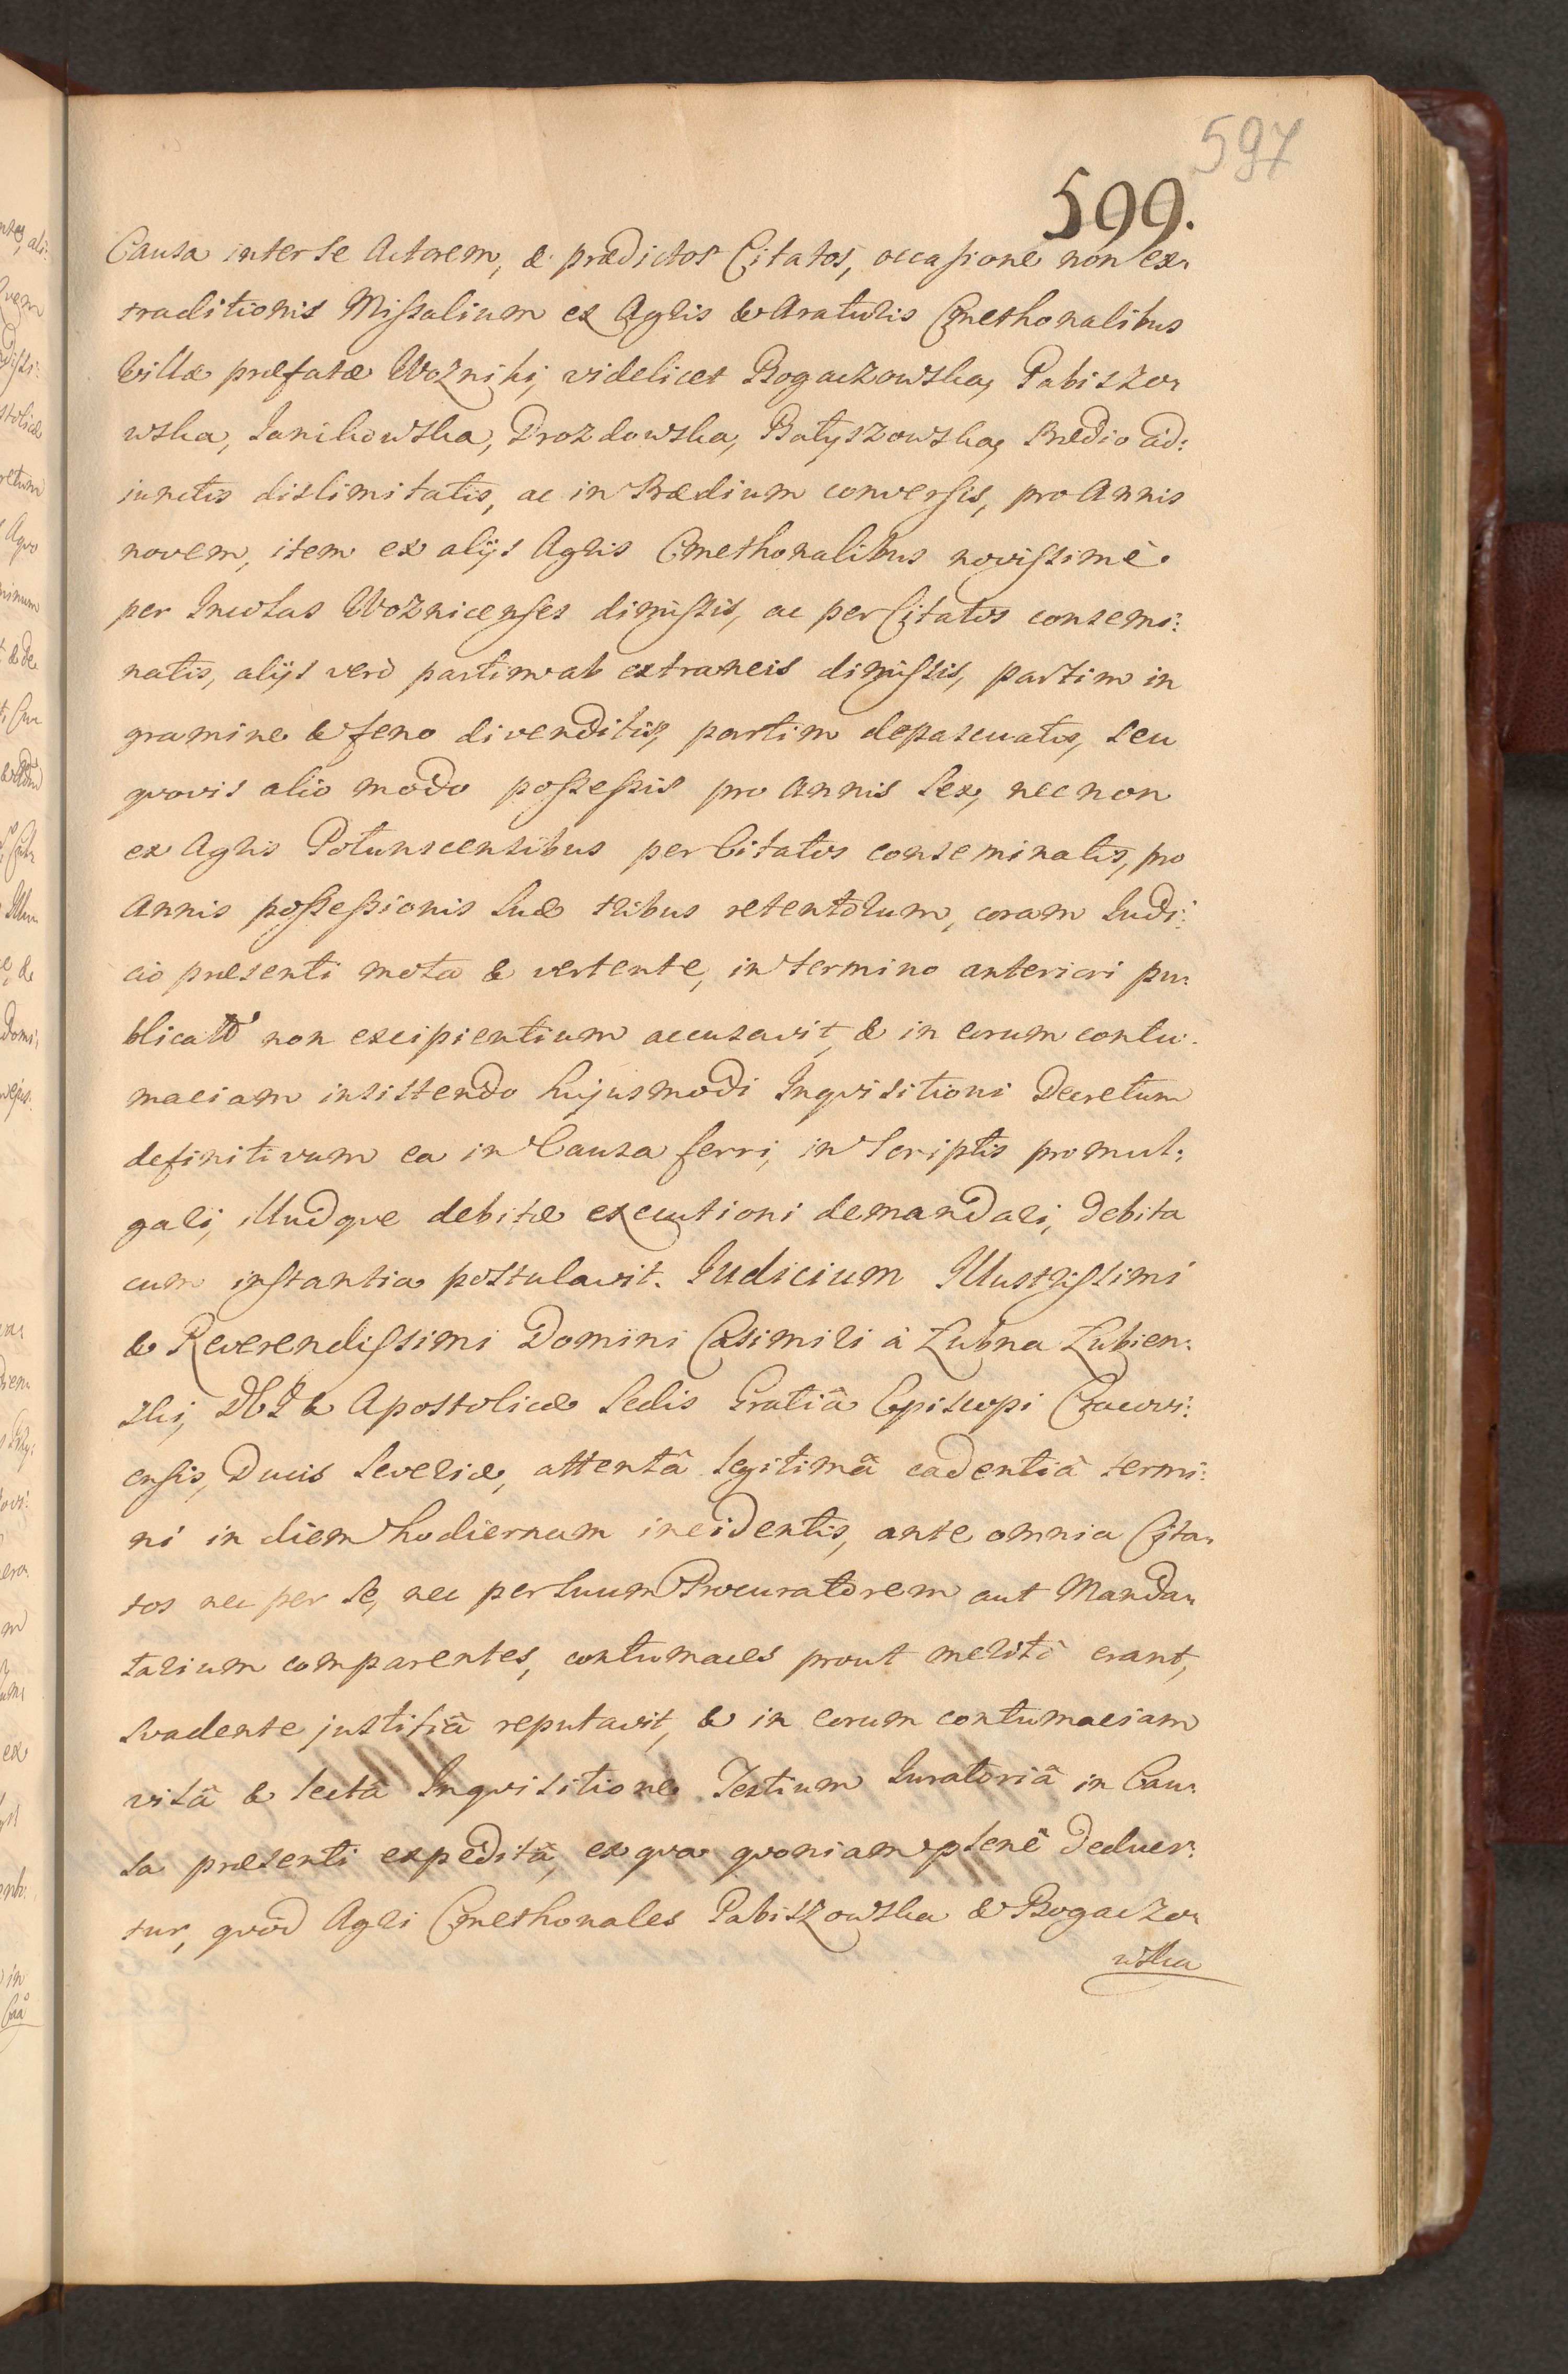 597
599.
Causa inter se Actorem, & prædictos Citatos, occasione non ex:
traditionis Missalium ex Agris & Araturis Cmethonalibus
Villæ præfatæ Wozniki, videlicet Bogaczowska, Pabiszo:
wska, Janikowska, Drozdowska, Batyszowska, Prædio ad:
iunctis dislimitatis, ac in Prædium conversis, pro Annis
novem, item ex alijs Agris Cmethonalibus novissimè
per Incolas Woznicenses dimissis, ac per Citatos consemi:
natis, alijs verò partim ab extraneis dimissis, partim in
gramine & feno divenditis, partim depascuatis, seu
quovis alio modo possessis pro Annis Sex, nec non
ex Agris Potunscensibus per Citatos conseminatis, pro
Annis possessionis suæ tribus retentorum, coram Judi:
cio præsenti mota & vertente, in termino anteriori pu:
blicato non excipientium accusavit, & in eorum contu:
maciam insistendo hujusmodi Inqvisitioni Decretum
definitivum ea in Causa ferri, in Scriptis promul:
gari, illudqve debitæ executioni demandari, debita
cum instantia postulavit. Judicium Illustrissimi
& Reverendissimi Domini Casimiri à Lubna Lubien:
ski, D G & Apostolicæ Sedis Gratiâ Episcopi Cracovi:
ensis, Ducis Severiæ, attentâ legitimâ cadentiâ termi:
ni in diem hodiernam incidentis, ante omnia Cita:
tos nec per se, nec per suum Procuratorem aut Manda:
tarium comparentes, contumaces prout meritò erant,
svadente justitiâ reputavit, & in eorum contumaciam
visâ & lectâ Inqvisitione Testium Juratoriâ in Cau:
sa præsenti expeditâ, ex qva qvoniam plenè deduci:
tur, qvòd Agri Cmethonales Pabiszowska & Bogaczo:
wska